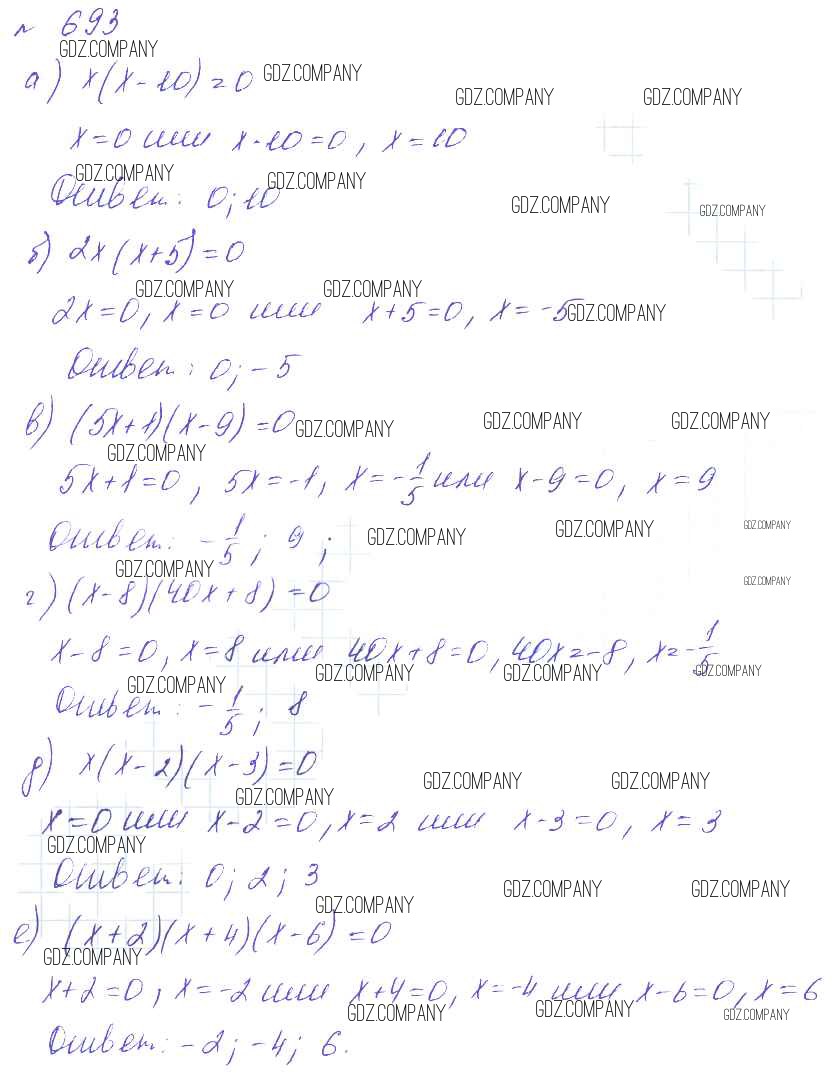 № 693
GDZ.COMPANY
а) x(x-10)=0 GDZ.COMPANY
GDZ.COMPANY GDZ.COMPANY
x=0 или x-10=0, x=10
GDZ.COMPANY GDZ.COMPANY
Ответ: 0; 10
GDZ.COMPANY GDZ.COMPANY
б) 2x(x+5)=0
GDZ.COMPANY GDZ.COMPANY
2x=0, x=0 или x+5=0, x=-5 GDZ.COMPANY
Ответ: 0; -5
в) (5x+1)(x-9)=0 GDZ.COMPANY GDZ.COMPANY GDZ.COMPANY
GDZ.COMPANY
5x+1=0, 5x=-1, x=-1/5 или x-9=0, x=9
Ответ: -1/5; 9; GDZ.COMPANY GDZ.COMPANY GDZ.COMPANY
GDZ.COMPANY GDZ.COMPANY
г) (x-8)(40x+8)=0
x-8=0, x=8 или 40x+8=0, 40x=-8, x=-1/5
GDZ.COMPANY GDZ.COMPANY GDZ.COMPANY
GDZ.COMPANY
Ответ: -1/5; 8
д) x(x-2)(x-3)=0
GDZ.COMPANY GDZ.COMPANY GDZ.COMPANY
x=0 или x-2=0, x=2 или x-3=0, x=3
GDZ.COMPANY
Ответ: 0; 2; 3
GDZ.COMPANY GDZ.COMPANY GDZ.COMPANY
е) (x+2)(x+4)(x-6)=0
GDZ.COMPANY
x+2=0, x=-2 или x+4=0, x=-4 или x-6=0, x=6
GDZ.COMPANY GDZ.COMPANY GDZ.COMPANY
Ответ: -2; -4; 6.